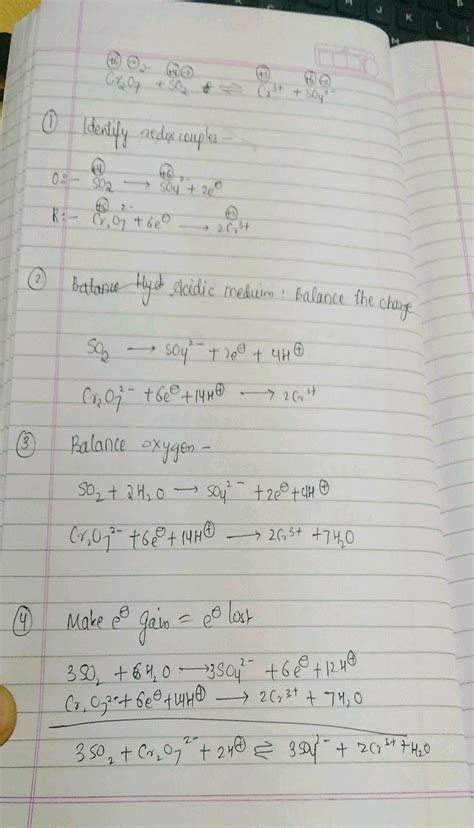 +6 -2 +4 -2 +3 +6 -2
Cr₂O₇²⁻ + SO₂ ⇌ Cr³⁺ + SO₄²⁻
① Identify redox couples -
+4 +6
O:- SO₂ → SO₄²⁻ + 2e⊖
+6 +3
R:- Cr₂O₇²⁻ + 6e⊖ → 2Cr³⁺
② Balance Hyd Acidic medium : Balance the charge
SO₂ → SO₄²⁻ + 2e⊖ + 4H⊕
Cr₂O₇²⁻ + 6e⊖ + 14H⊕ → 2Cr³⁺
③ Balance oxygen -
SO₂ + 2H₂O → SO₄²⁻ + 2e⊖ + 4H⊕
Cr₂O₇²⁻ + 6e⊖ + 14H⊕ → 2Cr³⁺ + 7H₂O
④ Make e⊖ gain = e⊖ lost
3SO₂ + 6H₂O → 3SO₄²⁻ + 6e⊖ + 12H⊕
Cr₂O₇²⁻ + 6e⊖ + 14H⊕ → 2Cr³⁺ + 7H₂O
3SO₂ + Cr₂O₇²⁻ + 2H⊕ ⇌ 3SO₄²⁻ + 2Cr³⁺ + H₂O